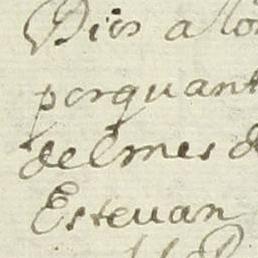 Dios a los
porquant
del mes d
Estevan